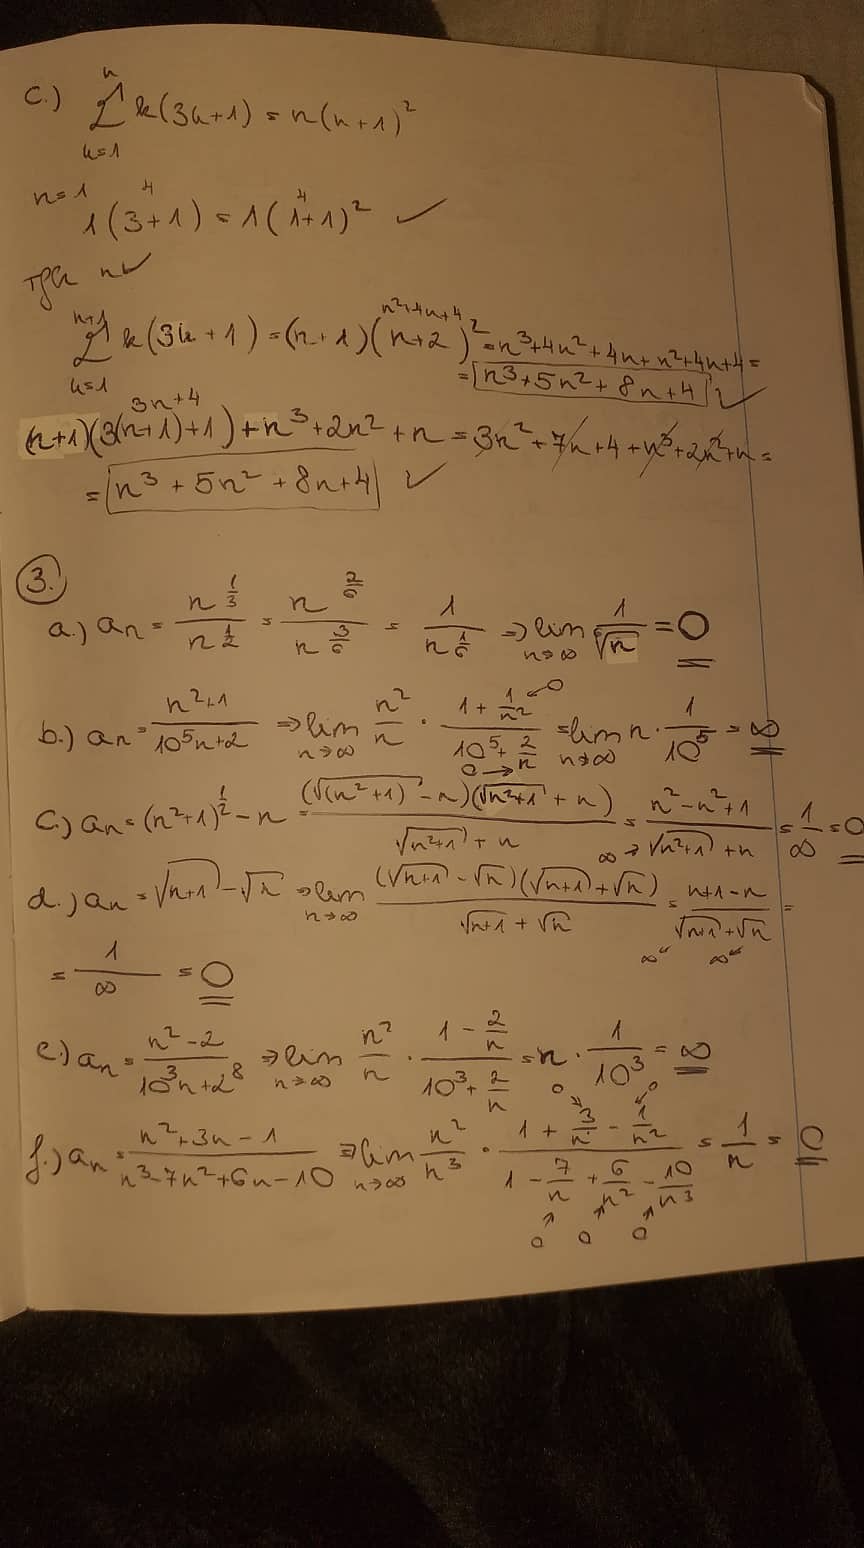 c.) n Σ k=1 k(3k+1) = n(n+1)²
n=1 1(3+1) = 1(1+1)² ✓ 4 4
Tfh n ✓
n+1 Σ k=1 k(3k+1) = (n+1)(n+2)² = n³+4n²+4n+n²+4n+4 = n²+4n+4
= n³+5n²+8n+4 ✓
(n+1)(3(n+1)+1) + n³+2n²+n = 3n²+7n+4+n³+2n²+n = 3n+4
= n³+5n²+8n+4 ✓
3.
a.) aₙ = n^(1/3) / n^(1/2) = n^(2/6) / n^(3/6) = 1 / n^(1/6) ⇒ lim n→∞ 1/⁶√n = 0
b.) aₙ = (n²+1)/(10⁵n+2) ⇒ lim n→∞ n²/n · (1+1/n²)/(10⁵+2/n) = lim n→∞ n · 1/10⁵ = ∞ ←0 0→
c.) aₙ = (n²+1)^(1/2) − n = (√(n²+1) − n)(√(n²+1) + n) / (√(n²+1) + n) = (n²−n²+1) / (√(n²+1) + n) = 1/∞ = 0 ∞→
d.) aₙ = √(n+1) − √n ⇒ lim n→∞ (√(n+1) − √n)(√(n+1) + √n) / (√(n+1) + √n) = (n+1−n) / (√(n+1) + √n) = ∞ ∞
= 1/∞ = 0
e.) aₙ = (n²−2)/(10³n+2⁸) ⇒ lim n→∞ n²/n · (1−2/n)/(10³+2/n) = n · 1/10³ = ∞
f.) aₙ = (n²+3n−1)/(n³−7n²+6n−10) ⇒ lim n→∞ n²/n³ · (1+3/n−1/n²)/(1−7/n+6/n²−10/n³) = 1/n = 0 0 0
0 0 0